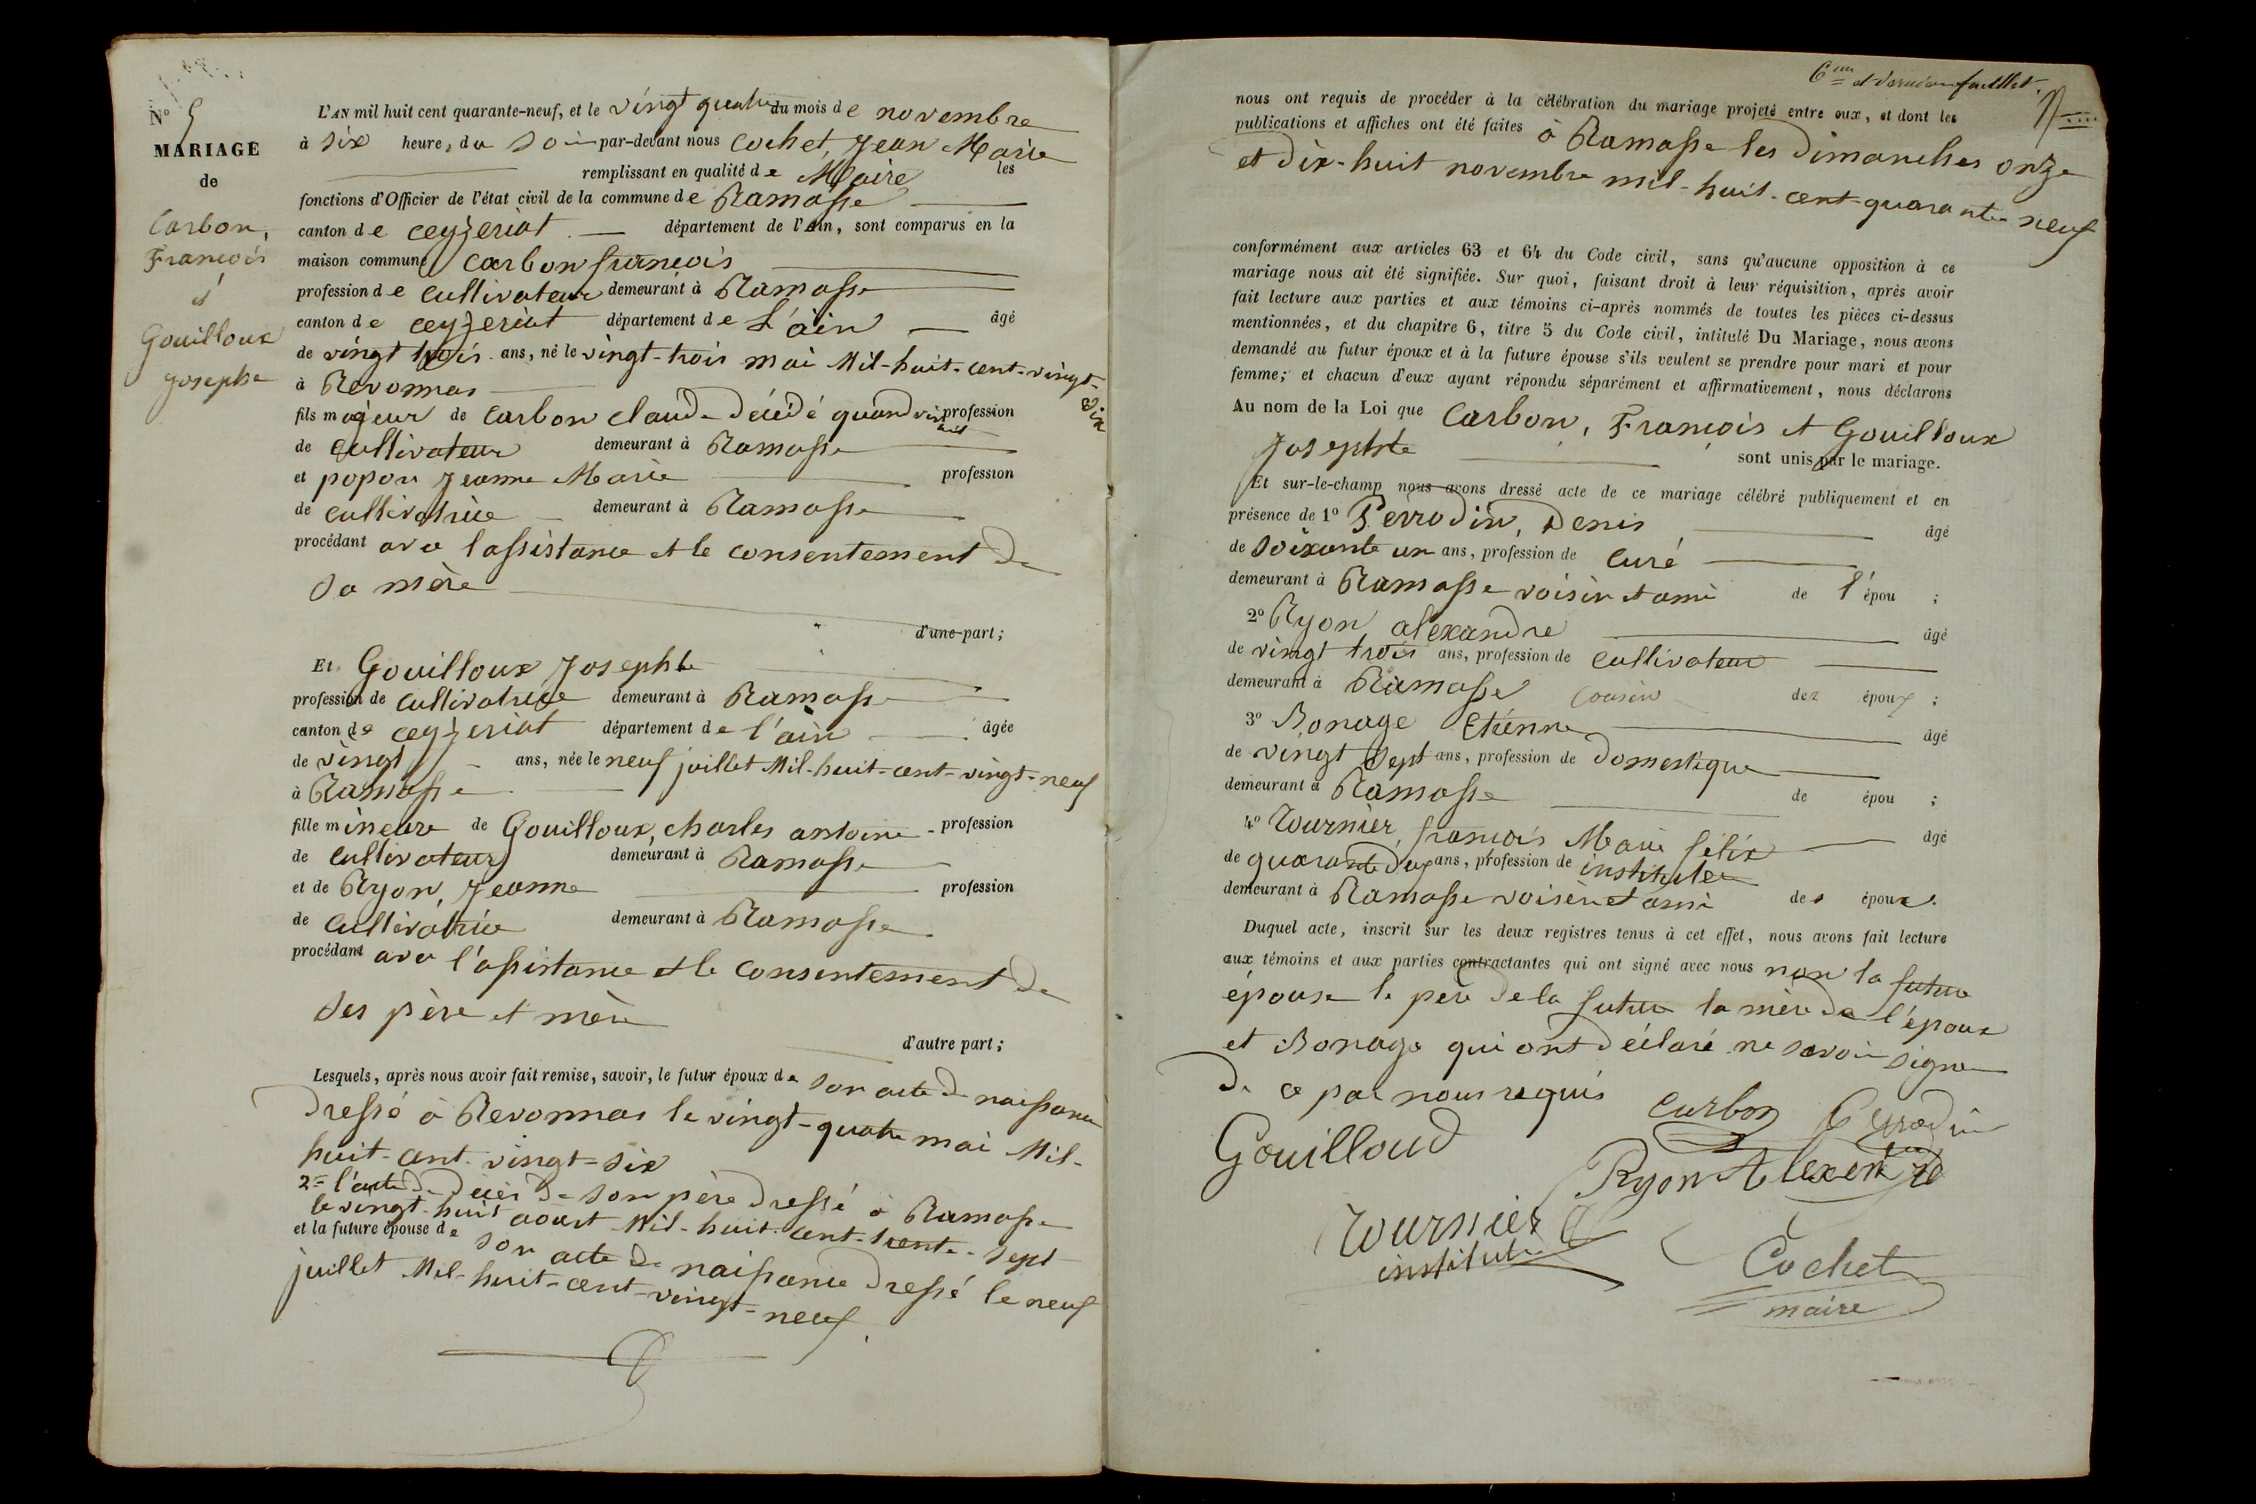 N° 5
MARIAGE
de
Carbon,
François
et
Gouilloux
Josephe
L'AN mil huit cent quarante-neuf, et le vingt quatre du mois de novembre
à six heures du soir par-devant nous Cochet, Jean Marie
remplissant en qualité de Maire les
fonctions d'Officier de l'état civil de la commune de Ramasse
canton de ceyzeriat département de l'Ain, sont comparus en la
maison commune Carbon françois
profession de cultivateur demeurant à Ramasse
canton de ceyzeriat département de L'ain âgé
de vingt trois ans, né le vingt-trois mai Mil-huit-cent-vingt-
six
à Revonnas
fils majeur de Carbon claude décédé quand vivait profession
de cultivateur demeurant à Ramasse
et popon Jeanne Marie profession
de cultivatrice demeurant à Ramasse
procédant avec l'assistance et le consentement de
sa mère
d'une part;
Et Gouilloux Josephte
profession de cultivatrice demeurant à Ramasse
canton de ceyzeriat département de l'ain âgée
de vingt ans, née le neuf juillet Mil-huit-cent-vingt-neuf
à Ramasse
fille mineure de Gouilloux, charles antoine profession
de cultivateur demeurant à Ramasse
et de Ryon, Jeanne profession
de cultivatrice demeurant à Ramasse
procédant avec l'assistance et le consentement de
ses père et mère
d'autre part;
Lesquels, après nous avoir fait remise, savoir, le futur époux de son acte de naissance
dressé à Revonnas le vingt-quatre mai Mil-
huit-cent-vingt-six
2° l'acte de décès de son père dressé à Ramasse
le vingt-huit aoust Mil-huit-cent-trente-sept
et la future épouse de son acte de naissance dressé le neuf
juillet Mil-huit-cent-vingt-neuf.
6me et dernier feuillet.
nous ont requis de procéder à la célébration du mariage projeté entre eux, et dont les
publications et affiches ont été faites à Ramasse les dimanches onze
et dix-huit novembre mil-huit-cent-quarante neuf
conformément aux articles 63 et 64 du Code civil, sans qu'aucune opposition à ce
mariage nous ait été signifiée. Sur quoi, faisant droit à leur réquisition, après avoir
fait lecture aux parties et aux témoins ci-après nommés de toutes les pièces ci-dessus
mentionnées, et du chapitre 6, titre 5 du Code civil, intitulé Du Mariage, nous avons
demandé au futur époux et à la future épouse s'ils veulent se prendre pour mari et pour
femme; et chacun d'eux ayant répondu séparément et affirmativement, nous déclarons
Au nom de la Loi que Carbon, François et Gouilloux
Josephte sont unis par le mariage.
Et sur-le-champ nous avons dressé acte de ce mariage célébré publiquement et en
présence de 1° Perrodin, Denis âgé
de soixante un ans, profession de curé
demeurant à Ramasse voisin et ami de l'épou ;
2° Ryon alexandre âgé
de vingt trois ans, profession de cultivateur
demeurant à Ramasse cousin des époux ;
3° Bonage Etienne âgé
de vingt sept ans, profession de domestique
demeurant à Ramasse de épou ;
4° Tournier, françois Marie félix âgé
de quarante deux ans, profession de instituteur
demeurant à Ramasse voisin et ami des époux.
Duquel acte, inscrit sur les deux registres tenus à cet effet, nous avons fait lecture
aux témoins et aux parties contractantes qui ont signé avec nous non la future
épouse le père de la future la mère de l'époux
et Bonage qui ont déclaré ne savoir signer
de ce par nous requis
Carbon Perrodin
Gouilloud
Ryon Alexendre
Tournier
instituteur
Cochet
maire